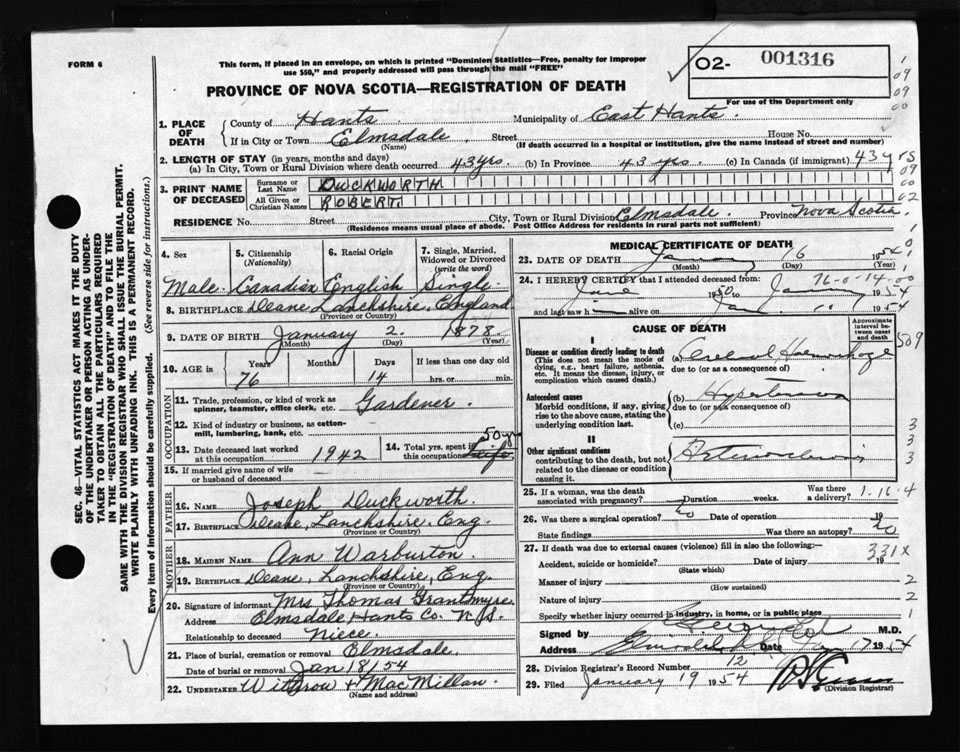 FORM 6
This form, if placed in an envelope, on which is printed "Dominion Statistics—Free, penalty for improper
use $50," and properly addressed will pass through the mail "FREE"
O2- 001316
For use of the Department only
1
09
09
00
PROVINCE OF NOVA SCOTIA—REGISTRATION OF DEATH
1. PLACE OF DEATH
County of Hants Municipality of East Hants.
If in City or Town Elmsdale Street House No.
(Name) (If death occurred in a hospital or institution, give the name instead of street and number)
2. LENGTH OF STAY (in years, months and days)
(a) In City, Town or Rural Division where death occurred 43 yrs. (b) In Province 43 yrs. (c) In Canada (if immigrant) 43 yrs
3. PRINT NAME OF DECEASED
Surname or Last Name DUCKWORTH
All Given or Christian Names ROBERT
09
00
02
RESIDENCE No. Street City, Town or Rural Division Elmsdale. Province Nova Scotia.
(Residence means usual place of abode. Post Office Address for residents in rural parts not sufficient)
4. Sex
Male
5. Citizenship (Nationality)
Canadian
6. Racial Origin
English
7. Single, Married, Widowed or Divorced (write the word)
Single
8. BIRTHPLACE Deane Lanchshire, England
(Province or Country)
9. DATE OF BIRTH January 2. 1878.
(Month) (Day) (Year)
10. AGE in Years Months Days If less than one day old
76 14 hrs. or min.
OCCUPATION
11. Trade, profession, or kind of work as spinner, teamster, office clerk, etc. Gardener.
12. Kind of industry or business, as cotton-mill, lumbering, bank, etc.
13. Date deceased last worked at this occupation 1942
14. Total yrs. spent in this occupation 50 yrs Life
15. If married give name of wife or husband of deceased
FATHER
16. Name Joseph Duckworth.
17. Birthplace Deane, Lanchshire, Eng.
(Province or Country)
MOTHER
18. MAIDEN NAME Ann Warburton.
19. BIRTHPLACE Deane, Lanchshire, Eng.
(Province or Country)
20. Signature of informant Mrs Thomas Grantmyre.
Address Elmsdale, Hants Co. N.S.
Relationship to deceased Niece.
21. Place of burial, cremation or removal Elmsdale.
Date of burial or removal Jan 18/54
22. UNDERTAKER Withrow + MacMillan.
(Name and address)
MEDICAL CERTIFICATE OF DEATH
23. DATE OF DEATH January 16 1954
(Month) (Day) (Year)
24. I HEREBY CERTIFY that I attended deceased from:
June 1950 to January 1954
and last saw him alive on Jan 1954
CAUSE OF DEATH
Approximate interval between onset and death
509
I
Disease or condition directly leading to death (a) Cerebral Haemorrhage
(This does not mean the mode of dying, e.g., heart failure, asthenia, etc. It means the disease, injury, or complication which caused death.)
due to (or as a consequence of)
Antecedent causes (b) Hypertension
Morbid conditions, if any, giving rise to the above cause, stating the underlying condition last.
due to (or as a consequence of)
(c)
II
Other significant conditions contributing to the death, but not related to the disease or condition causing it.
Arteriosclerosis
3
3
3
25. If a woman, was the death associated with pregnancy? Duration weeks. Was there a delivery? 1-16-4
26. Was there a surgical operation? no Date of operation 19
State findings Was there an autopsy? no
27. If death was due to external causes (violence) fill in also the following:—
331X
Accident, suicide or homicide? Date of injury 19
(State which)
Manner of injury 2
(How sustained)
Nature of injury 2
Specify whether injury occurred in industry, in home, or in public place 1
Signed by M.D.
Address Date 1954
28. Division Registrar's Record Number 12
29. Filed January 19 1954
(Division Registrar)
SEC. 46—VITAL STATISTICS ACT MAKES IT THE DUTY
OF THE UNDERTAKER OR PERSON ACTING AS UNDER-
TAKER TO OBTAIN ALL THE PARTICULARS REQUIRED
IN THE "REGISTRATION OF DEATH" AND TO FILE THE
SAME WITH THE DIVISION REGISTRAR WHO SHALL ISSUE THE BURIAL PERMIT.
WRITE PLAINLY WITH UNFADING INK. THIS IS A PERMANENT RECORD.
Every item of information should be carefully supplied. (See reverse side for instructions.)